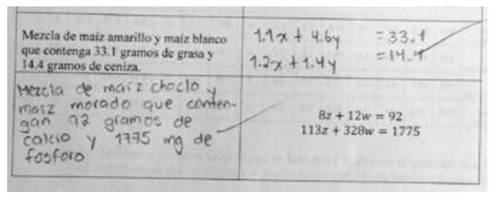 Mezcla de maíz amarillo y maíz blanco
que contenga 33.1 gramos de grasa y
14.4 gramos de ceniza.
1.1x + 4.6y = 33.1
1.2x + 1.4y = 14.4
Mezcla de maíz choclo y
maíz morado que conten-
gan 92 gramos de
calcio y 1775 mg de
fosforo
8z + 12w = 92
113z + 328w = 1775